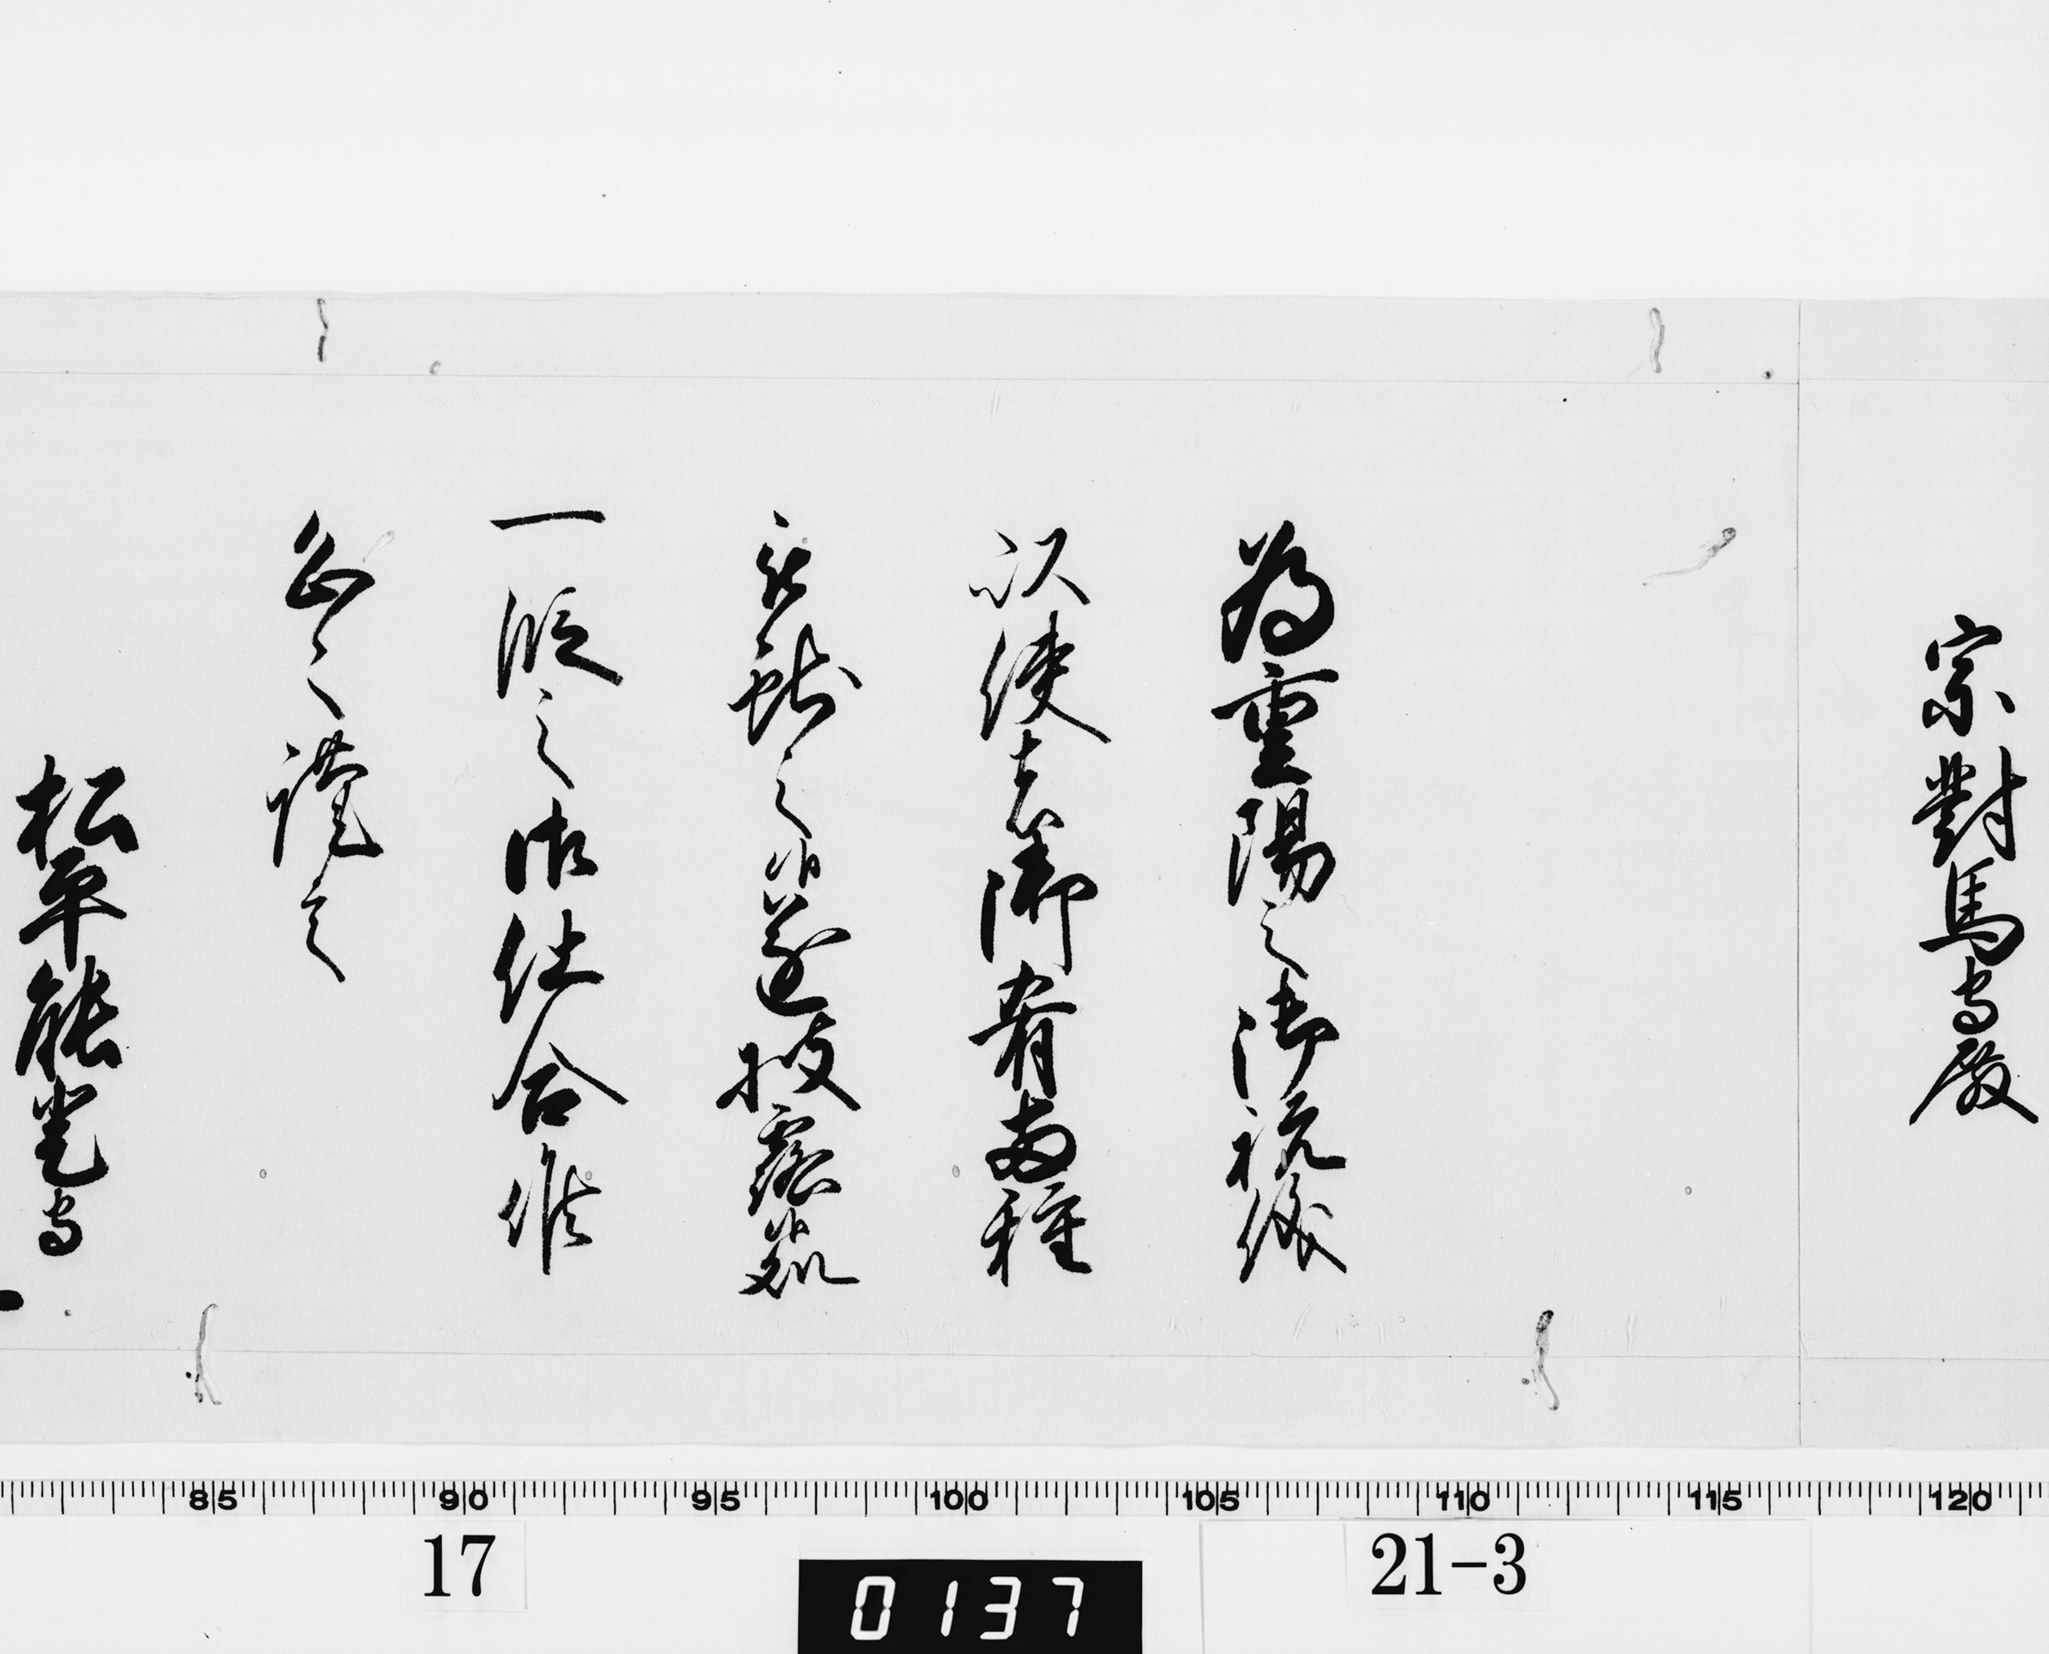 宗對馬守殿
為重陽之御祝儀
以使者御肴両種
被献之候遂披露候処
一段之御仕合候
恐々謹言
松平能登守
85 90 95 100 105 110 115 120
17
0137
21-3